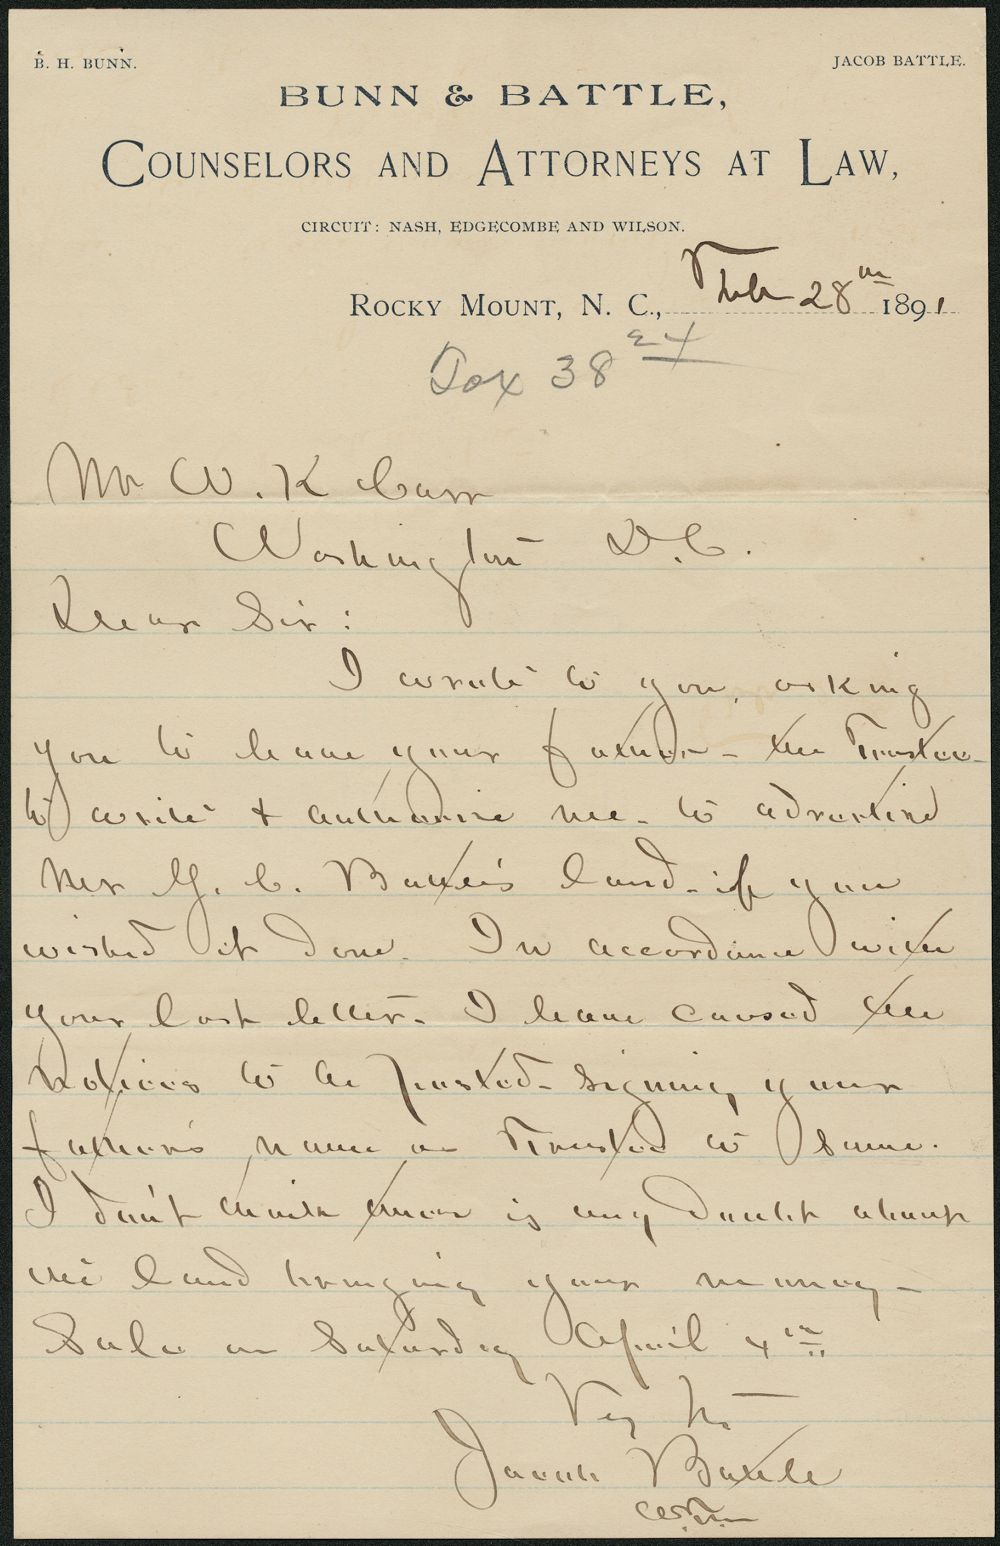 B. H. BUNN.
JACOB BATTLE.
BUNN & BATTLE,
COUNSELORS AND ATTORNEYS AT LAW,
CIRCUIT: NASH, EDGECOMBE AND WILSON.
ROCKY MOUNT, N. C., Feb 28th 1891
38 24
Mr W. K Carr
Washington D.C.
Dear Sir:
I wrote to you, asking
you to have your father - the Trustee -
to write & authorize me - to advertise
Mr G. C. Battle's land - if you
wished it done. In accordance with
your last letter - I have caused the
notices to be posted - signing your
father's name as Trustee to same.
I don't think there is any doubt about
the land bringing your money -
Sale on Saturday April 4th
Very Tr
Jacob Battle